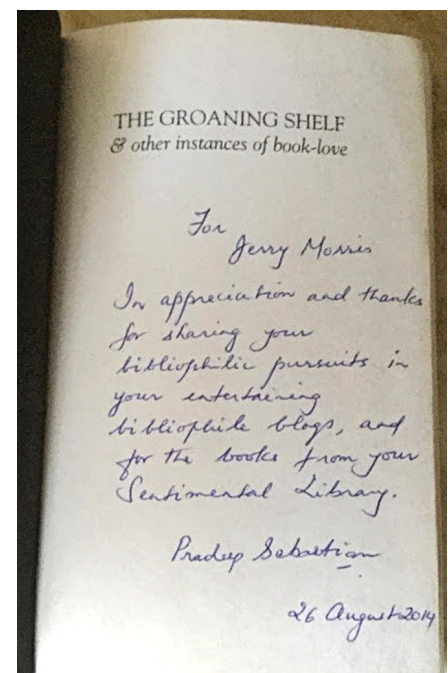 THE GROANING SHELF
& other instances of book-love
For
Jerry Morris
In appreciation and thanks
for sharing your
bibliophilic pursuits in
your entertaining
bibliophile blogs, and
for the books from your
Sentimental Library.
Pradeep Sebastian
26 August 2014